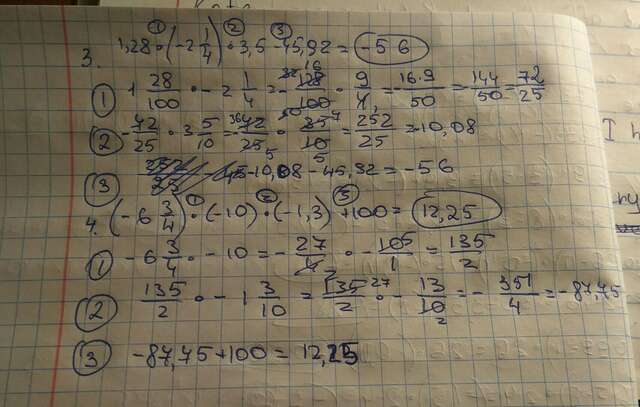 3. 1,28 · (-2 1/4) · 3,5 - 45,92 = -56
① 1 28/100 · -2 1/4 = - 128/100 · 9/4 = - 16·9/50 = - 144/50 = - 72/25
② - 72/25 · 3 5/10 = - 72/25 · 35/10 = - 252/25 = -10,08
③ -10,08 - 45,92 = -56
4. (-6 3/4) · (-10) · (-1,3) + 100 = 12,25
① -6 3/4 · -10 = - 27/4 · - 10/1 = 135/2
② 135/2 · -1 3/10 = 135/2 · - 13/10 = - 351/4 = -87,75
③ -87,75 + 100 = 12,25